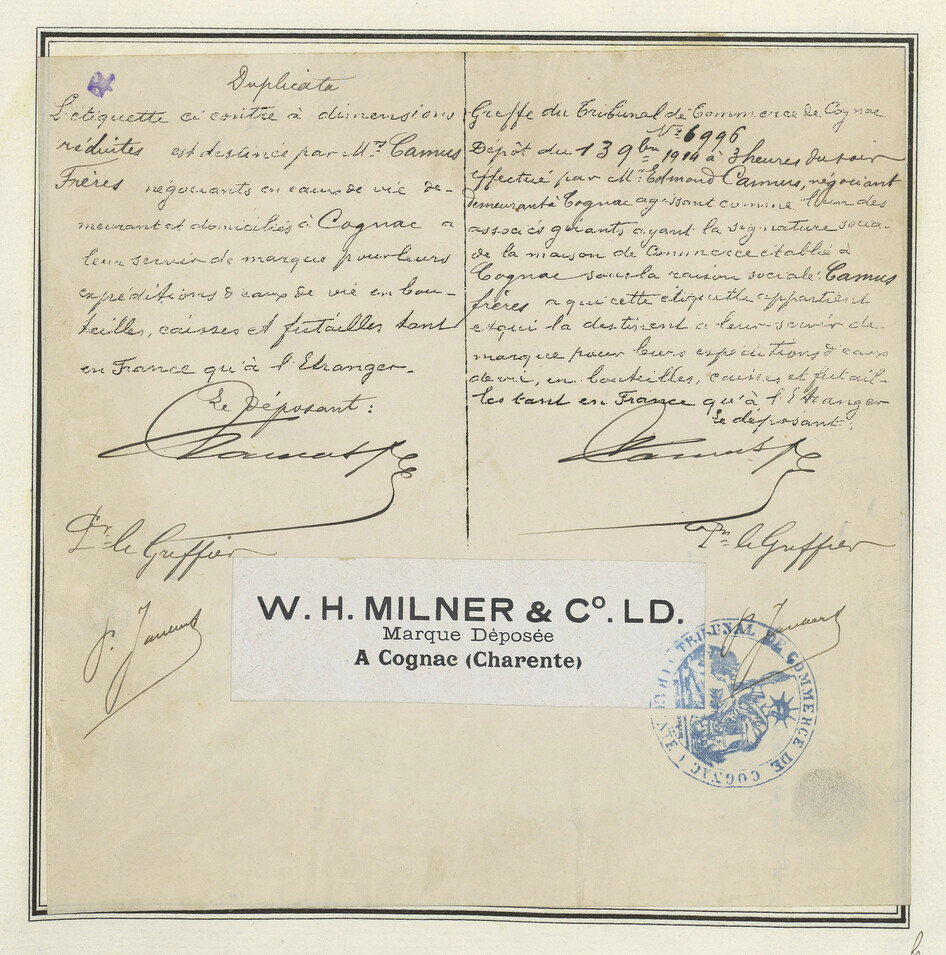 Duplicata
L'étiquette ci contre à dimensions
réduites est destinée par Mrs Camus
Frères négociants en eaux de vie de-
meurant et domiciliés à Cognac a
leur servir de marque pour leurs
expéditions d'eaux de vie en bou-
teilles, caisses et futailles tant
en France qu'à l'Etranger.
Le Déposant:
Camus f
Pr le Greffier
Greffe du Tribunal de Commerce de Cognac
No 6996
Dépôt du 13 9bre 1914 à 3 heures du soir
effectué par Mr Edmond Camus, négociant
demeurant à Cognac agissant comme l'un des
associés gérants ayant la signature socia-
de la maison de Commerce établie à
Cognac sous la raison sociale: Camus
frères a qui cette étiquette appartient
et qui la destinent a leur servir de
marque pour leurs expéditions d'eaux
de vie, en bouteilles, caisses et futail-
les tant en France qu'à l'Etranger
Le déposant:
Camus f
Pr le Greffier
W. H. MILNER & Co. LD.
Marque Déposée
A Cognac (Charente)
TRIBUNAL DE COMMERCE DE COGNAC